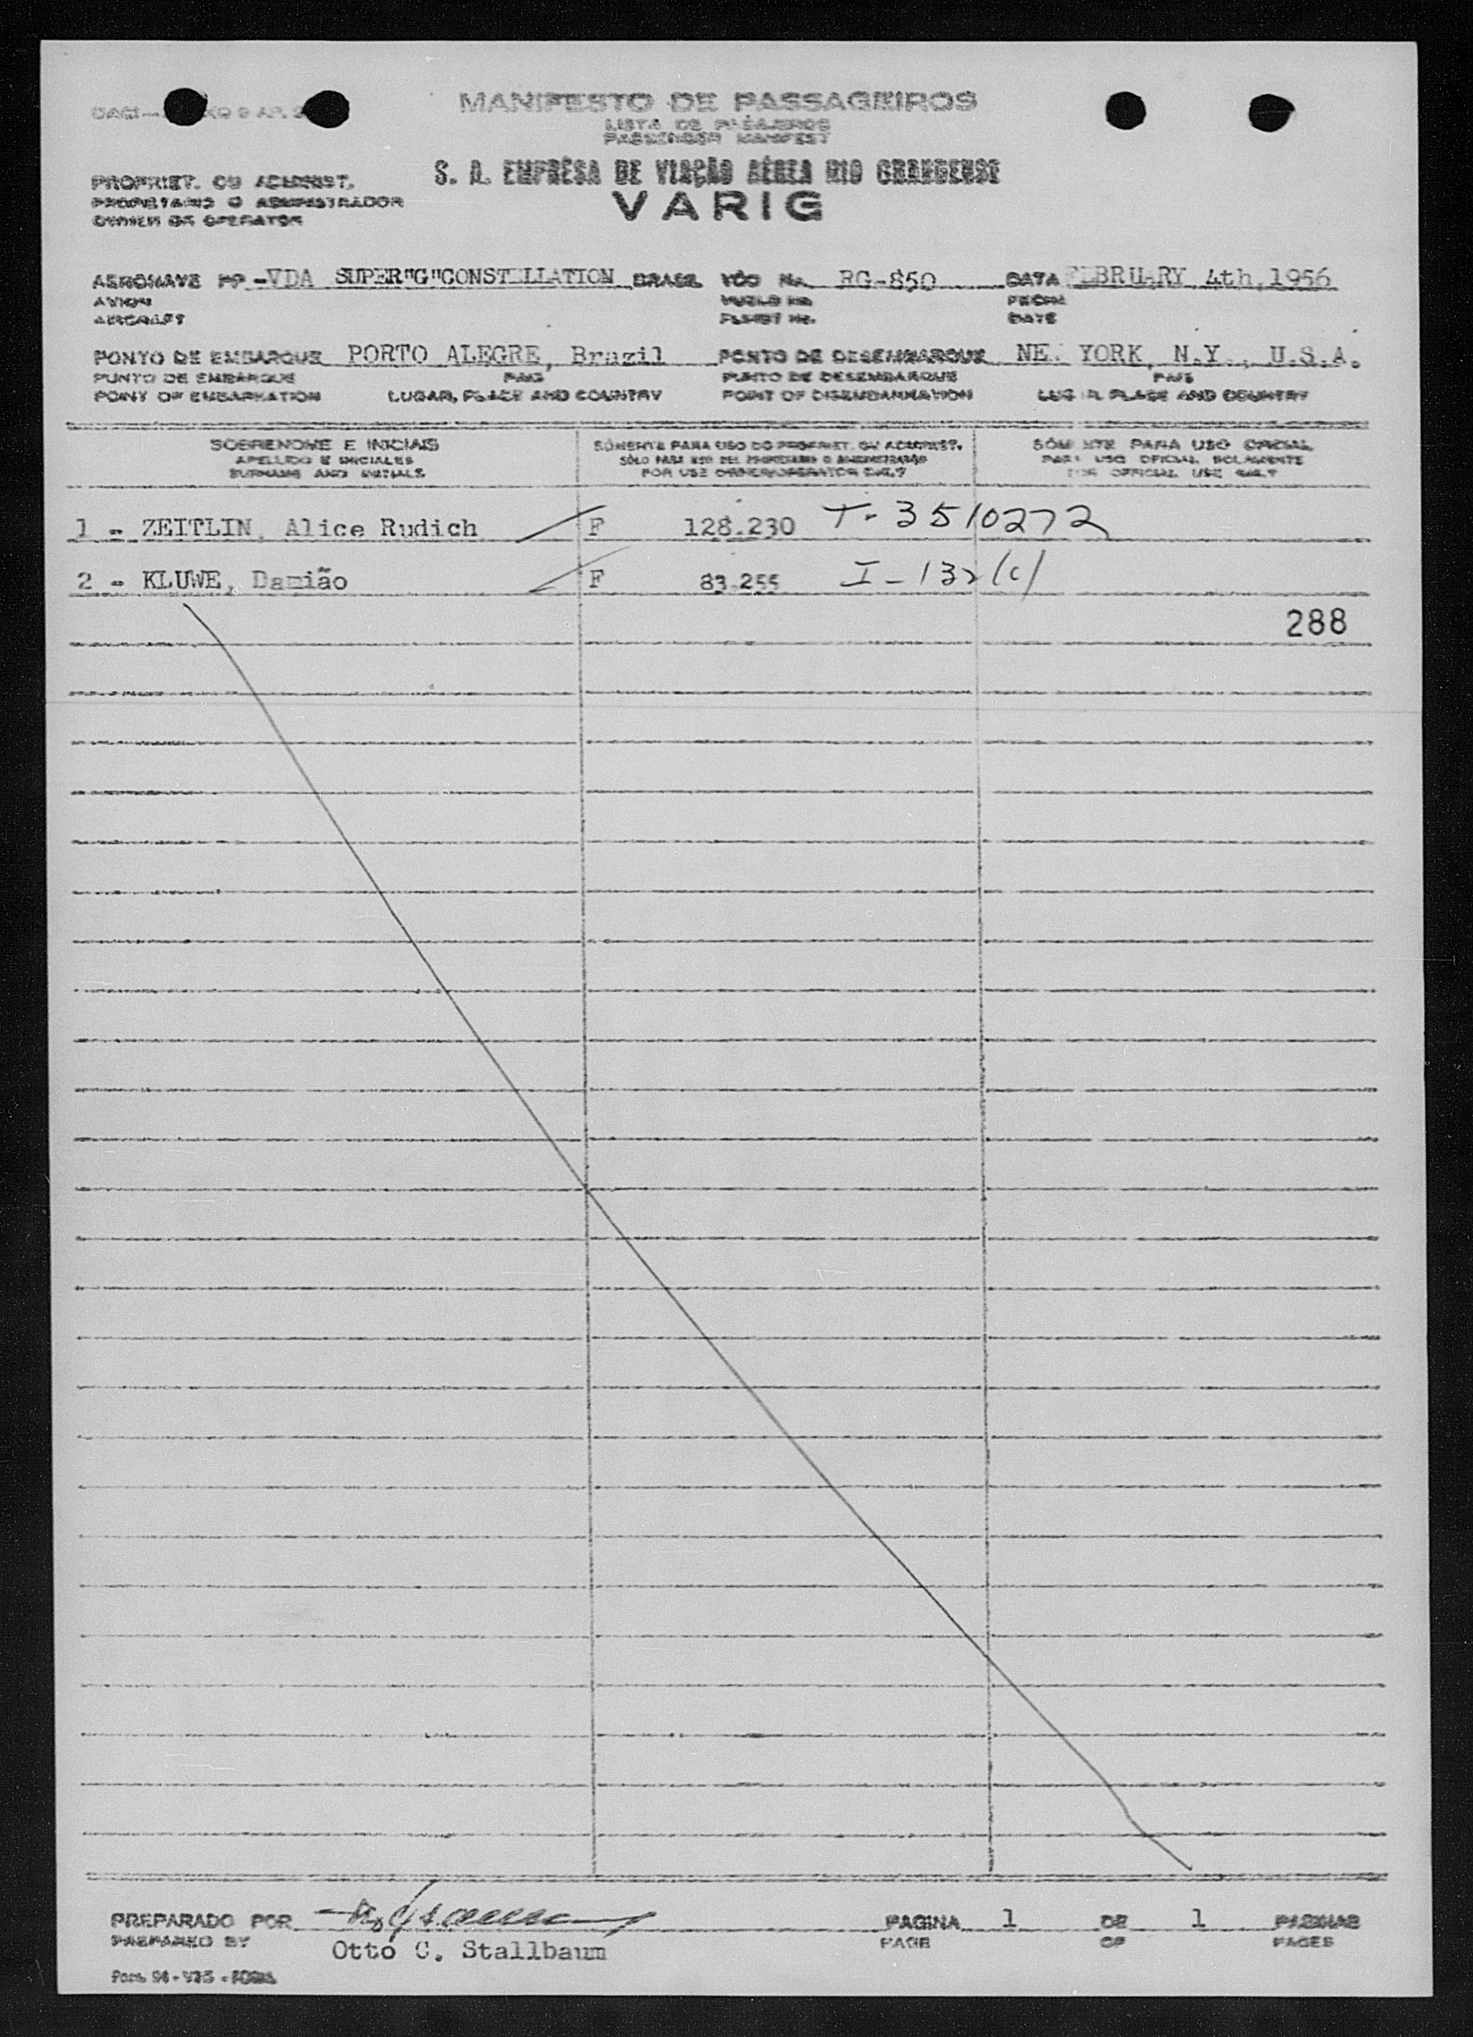 MANIFESTO DE PASSAGEIROS
LISTA DE PASAJEROS
PASSENGER MANIFEST
S. A. EMPRÊSA DE VIAÇÃO AÉREA RIO GRANDENSE
VARIG
PROPRIET. OU ADMINIST.
PROPIETARIO O ADMINISTRADOR
OWNER OR OPERATOR
AERONAVE PP -VDA SUPER"G"CONSTELLATION BRASIL VÔO No. RG-850 DATA FEBRUARY 4th, 1956
AVION VUELO No. FECHA
AIRCRAFT FLIGHT No. DATE
PONTO DE EMBARQUE PORTO ALEGRE, Brazil PONTO DE DESEMBARQUE NE YORK, N.Y., U.S.A.
PUNTO DE EMBARQUE PAIS PUNTO DE DESEMBARQUE PAIS
POINT OF EMBARKATION LUGAR, PLACE AND COUNTRY POINT OF DISEMBARKATION LUGAR, PLACE AND COUNTRY
SOBRENOME E INICIAIS SÓMENTE PARA USO DO PROPRIET. OU ADMINIST. SÓMENTE PARA USO OFICIAL
APELLIDO E INICIALES SÓLO PARA USO DEL PROPIETARIO O ADMINISTRADOR PARA USO OFICIAL SOLAMENTE
SURNAME AND INITIALS FOR USE OWNER/OPERATOR ONLY FOR OFFICIAL USE ONLY
1 - ZEITLIN, Alice Rudich F 128.230 T- 3510272
2 - KLUWE, Damião F 83.255 I - 132 (c)
288
PREPARADO POR PAGINA 1 DE 1 PAGINAS
PREPARED BY Otto C. Stallbaum PAGE OF PAGES